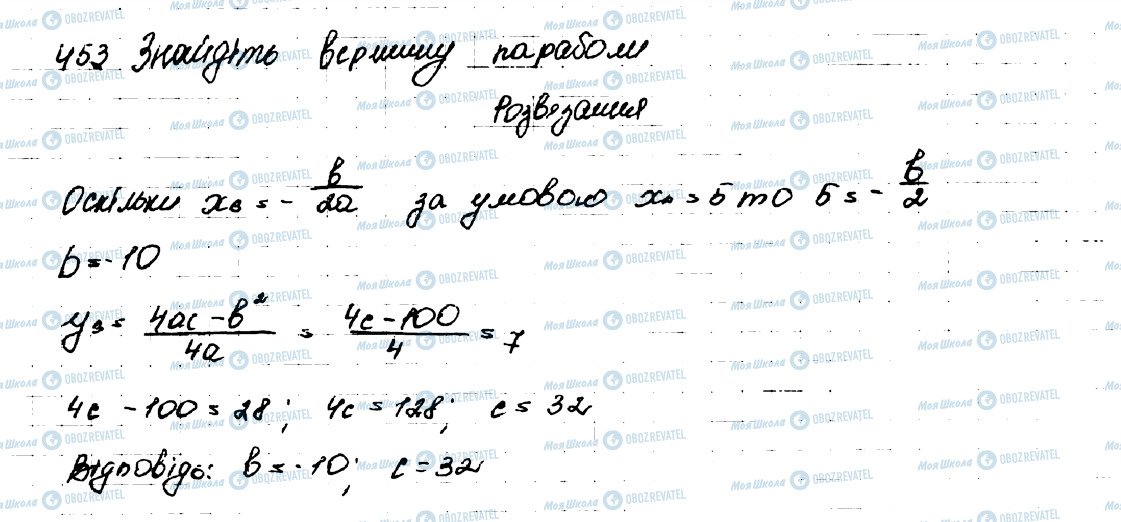 453 Знайдіть вершину параболи
Розвязання
Оскільки xв = - в/2a за умовою xв = 5 то 5 = - в/2
b = -10
yв = 4ac - в²/4a = 4c - 100/4 = 7
4c - 100 = 28; 4c = 128; c = 32
Відповідь: в = -10; c = 32